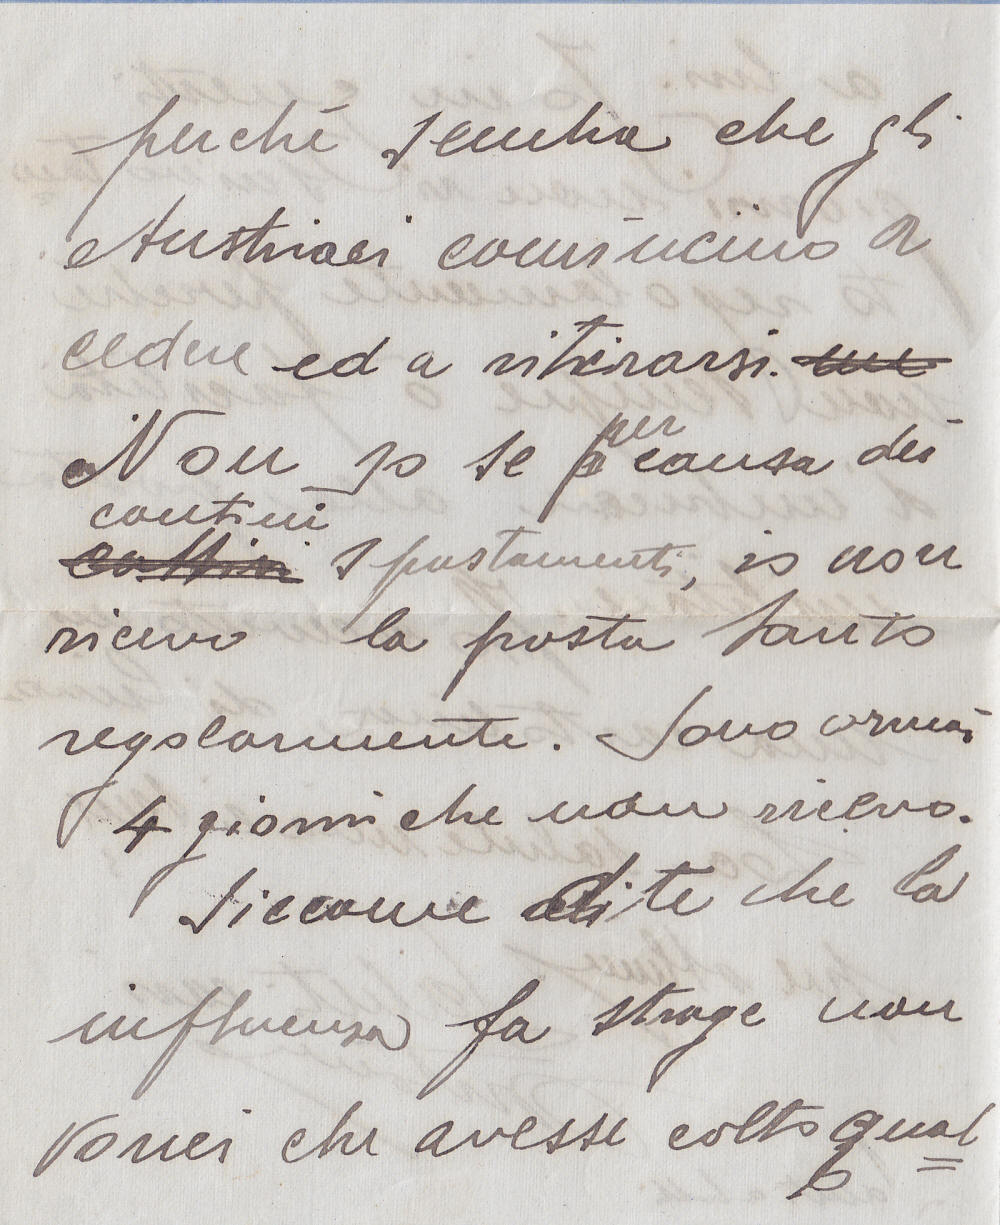 perché sembra che gli
Austriaci comincino a
cedere ed a ritirarsi.
Non so se per causa dei
continui
spostamenti, io non
ricevo la posta tanto
regolarmente. Sono ormai
4 giorni che non ricevo.
Siccome dite che la
influenza fa strage non
vorrei che avesse colto qual